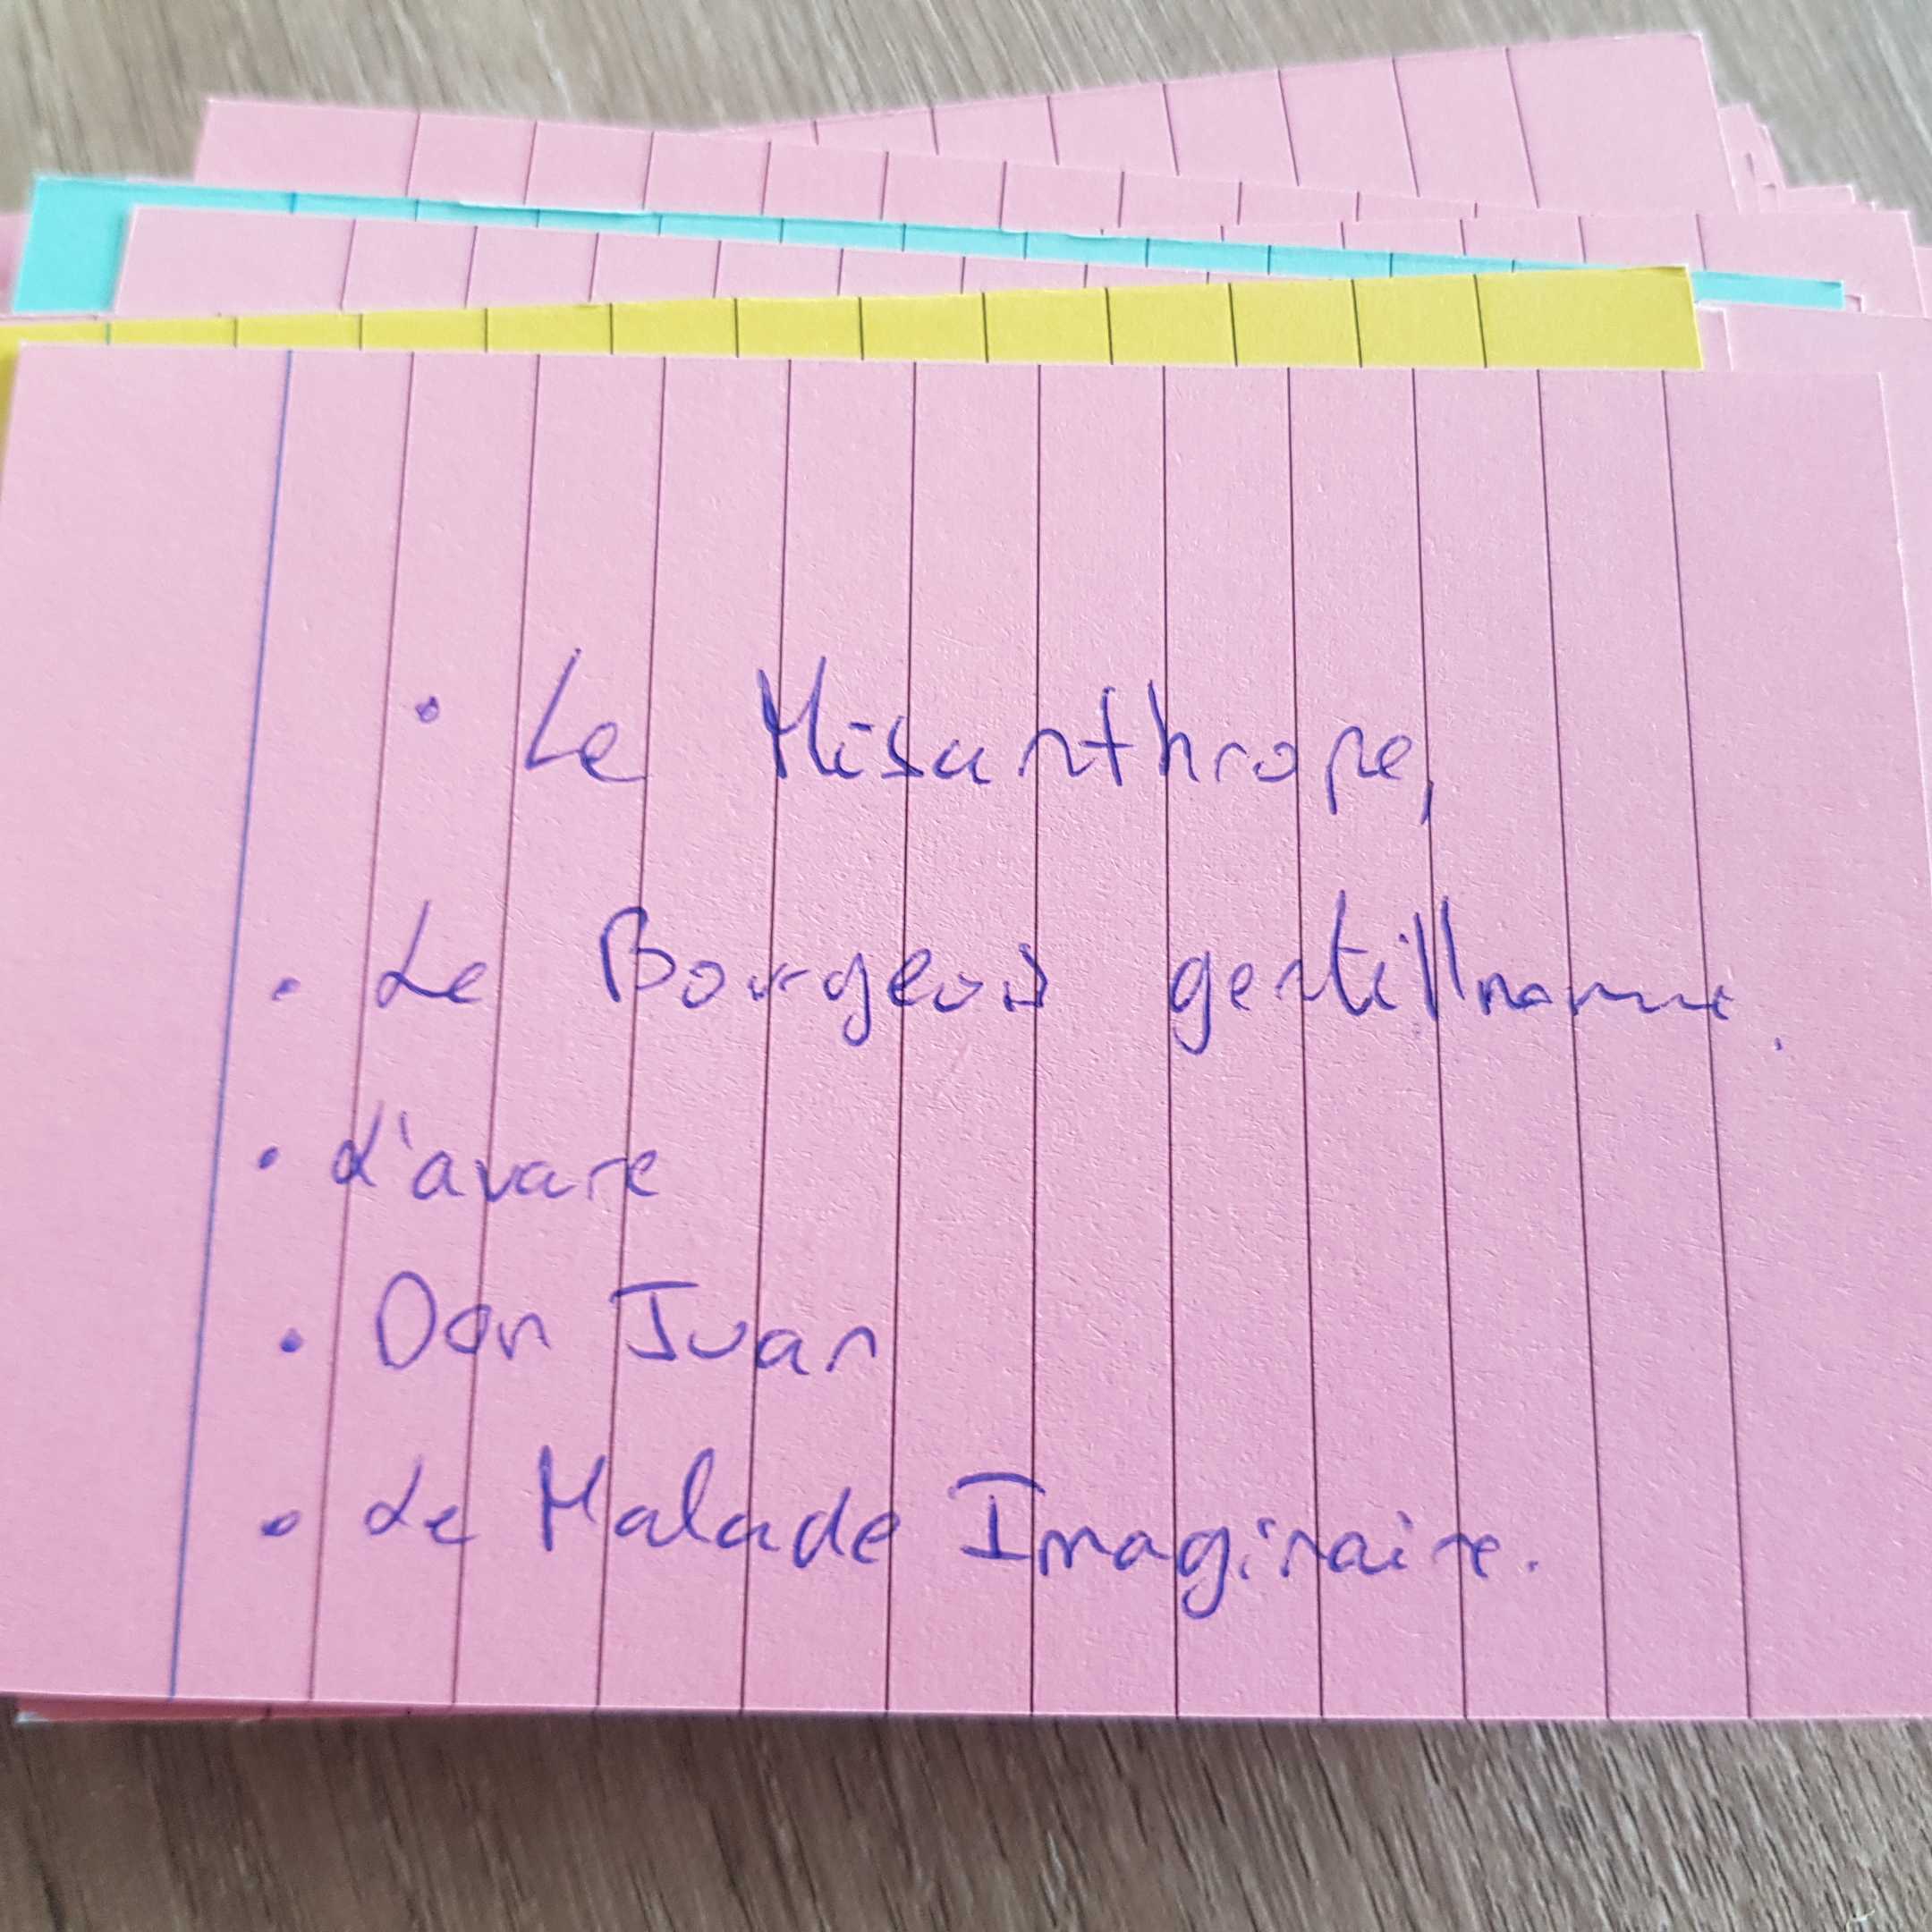 • Le Misanthrope,
• Le Bourgeois gentillhomme.
• L'avare
• Don Juan
• Le Malade Imaginaire.